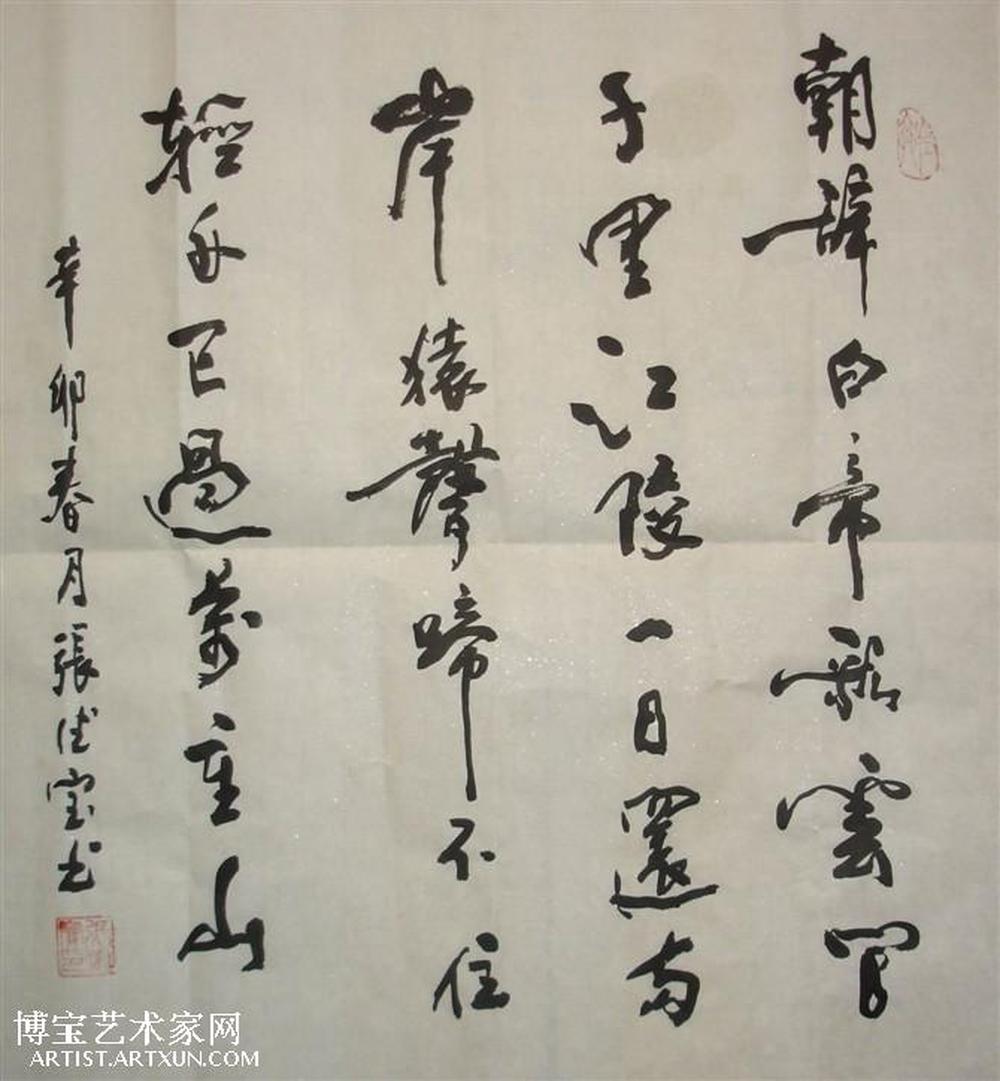 朝辞白帝彩雲間
千里江陵一日還両
岸猿聲啼不住
輕舟已過萬重山
辛卯春月張佳宝书
博宝艺术家网
ARTIST.ARTXUN.COM